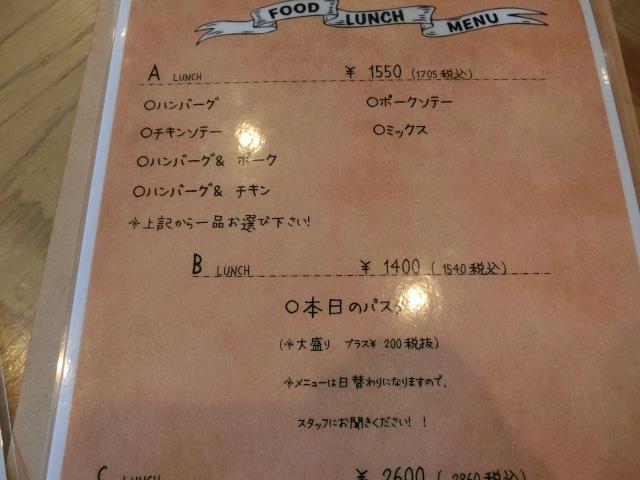 FOOD LUNCH MENU
A LUNCH ¥ 1550 (1705 税込)
○ハンバーグ ○ポークソテー
○チキンソテー ○ミックス
○ハンバーグ& ポーク
○ハンバーグ& チキン
※上記から一品お選び下さい!
B LUNCH ¥ 1400 (1540 税込)
○本日のパスタ
(※大盛り プラス¥ 200 税抜)
※メニューは日替わりになりますので、
スタッフにお聞きください!!
C LUNCH ¥ 2600 (2860 税込)